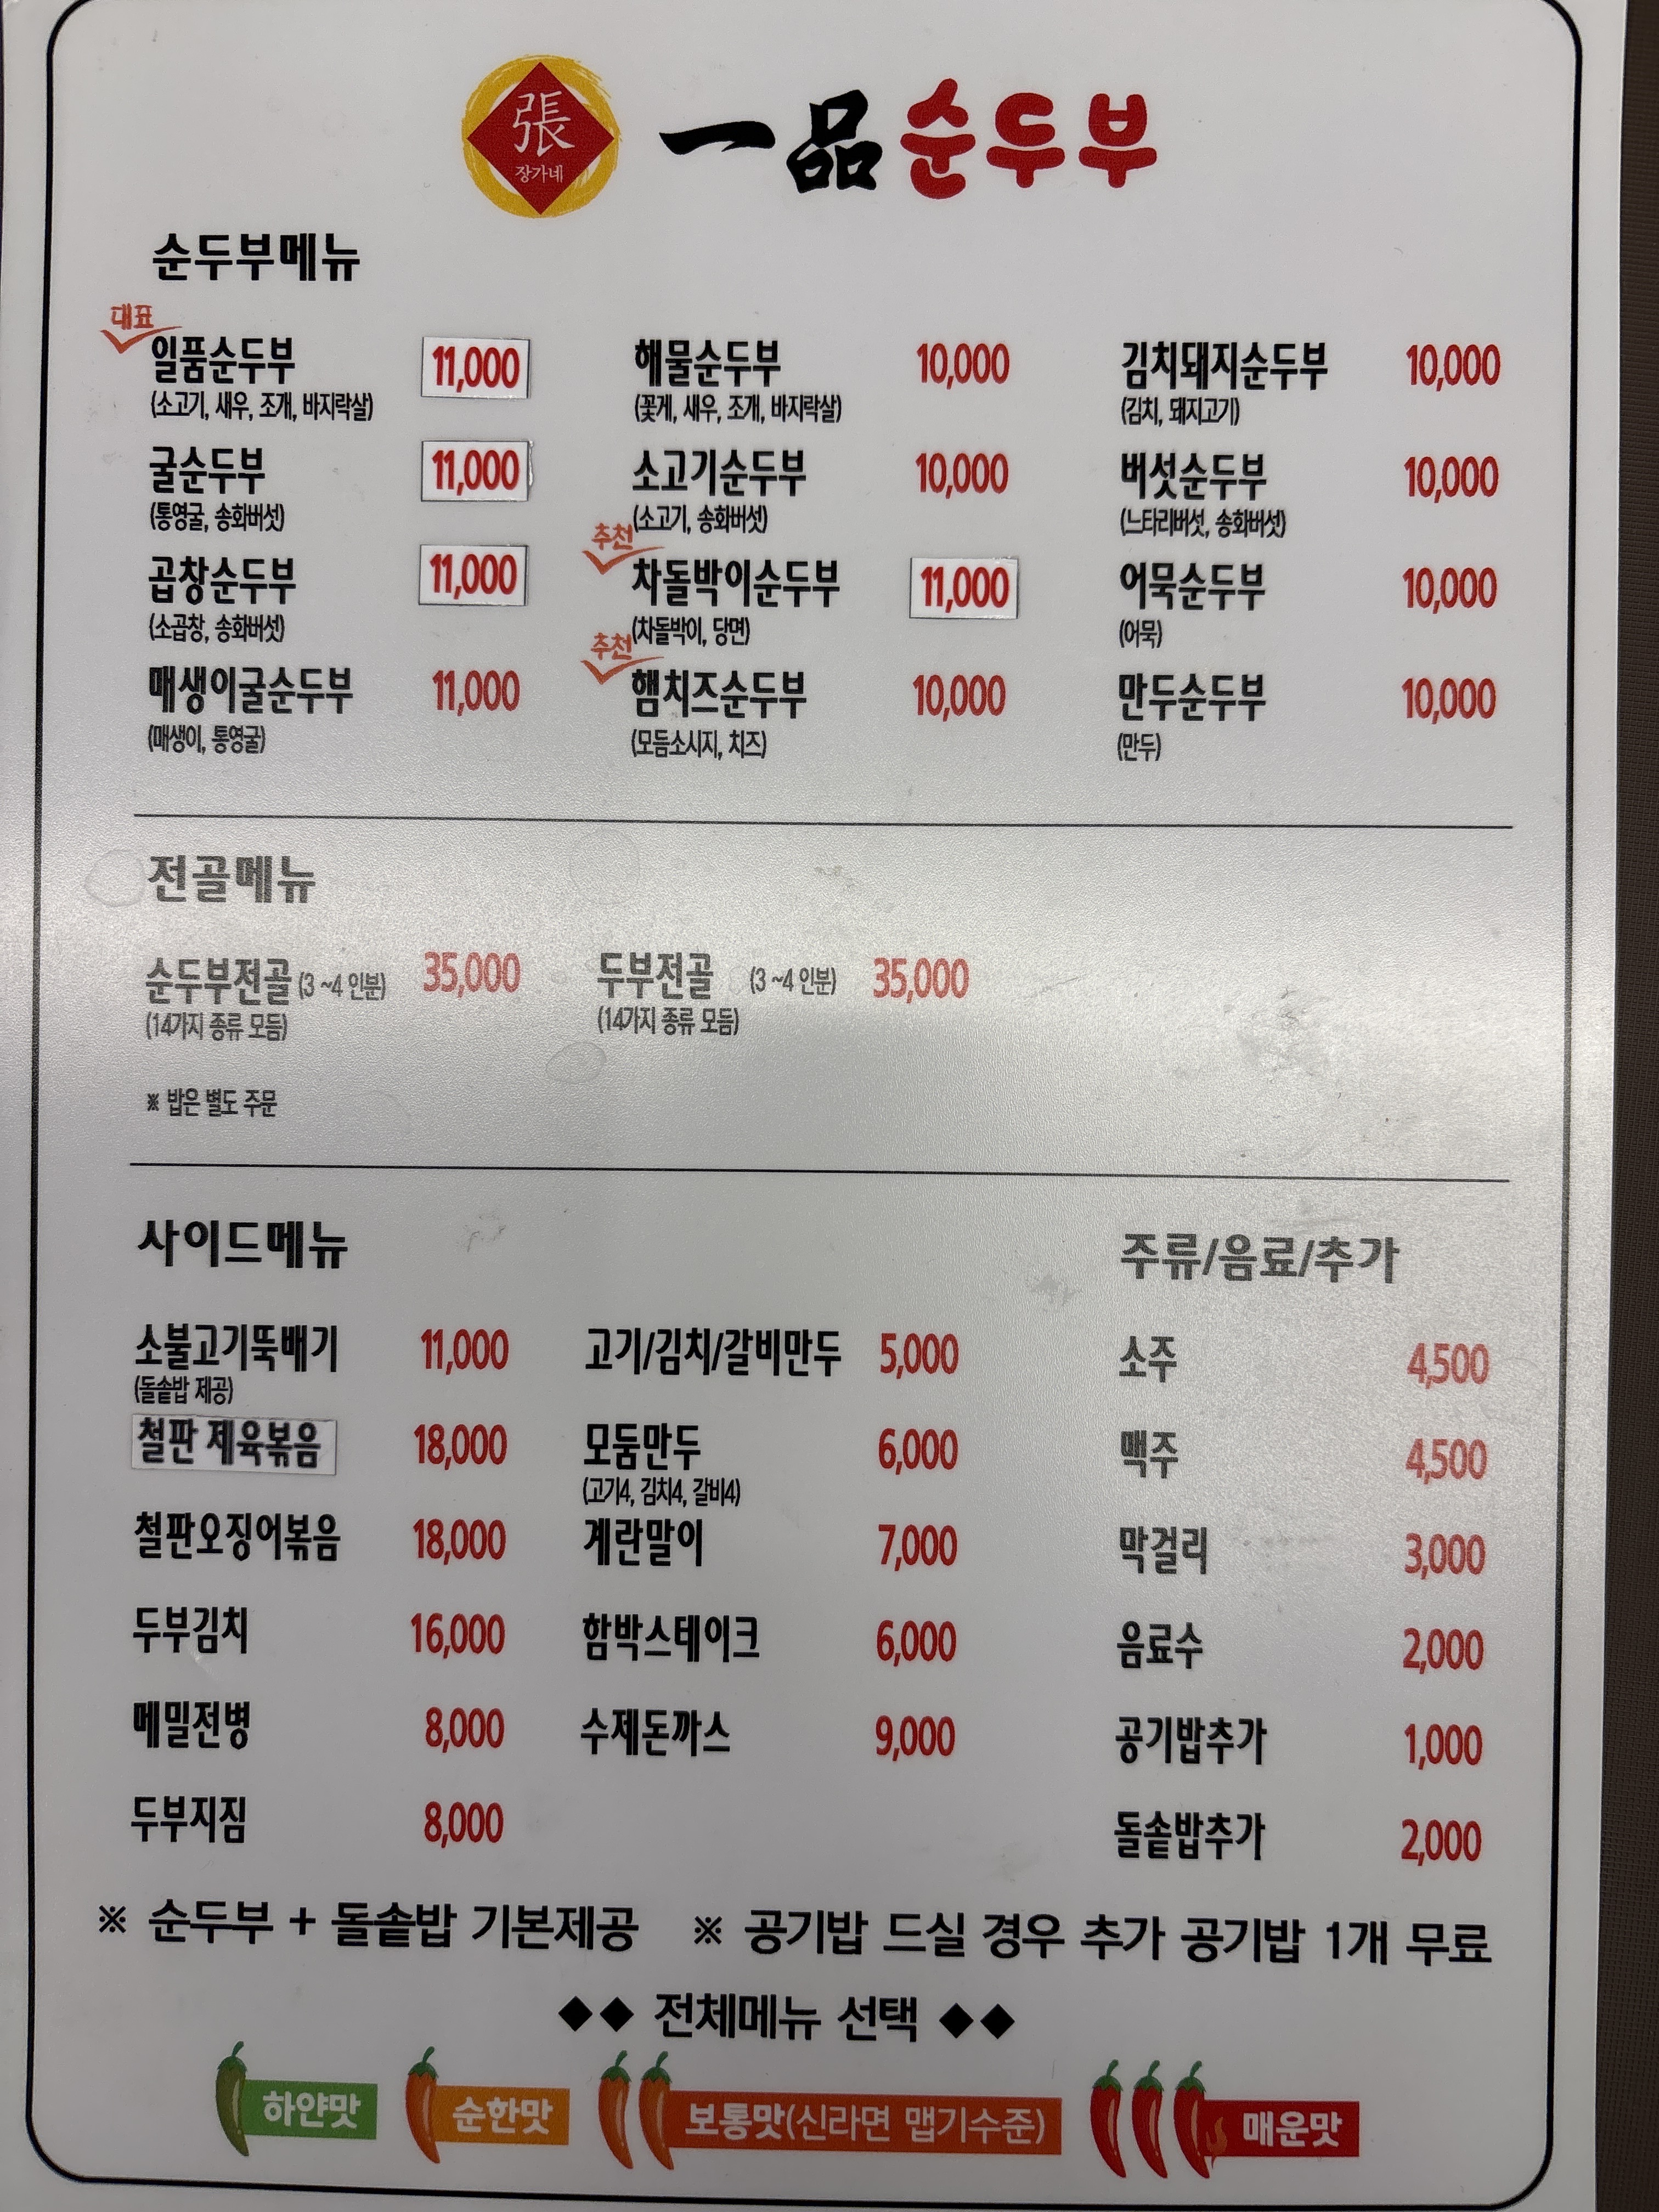 張
장가네
一品순두부
순두부메뉴
대표
일품순두부 11,000
(소고기, 새우, 조개, 바지락살)
굴순두부 11,000
(통영굴, 송화버섯)
곱창순두부 11,000
(소곱창, 송화버섯)
매생이굴순두부 11,000
(매생이, 통영굴)
해물순두부 10,000
(꽃게, 새우, 조개, 바지락살)
소고기순두부 10,000
(소고기, 송화버섯)
추천
차돌박이순두부 11,000
(차돌박이, 당면)
추천
햄치즈순두부 10,000
(모듬소시지, 치즈)
김치돼지순두부 10,000
(김치, 돼지고기)
버섯순두부 10,000
(느타리버섯, 송화버섯)
어묵순두부 10,000
(어묵)
만두순두부 10,000
(만두)
전골메뉴
순두부전골 (3 ~4 인분) 35,000
(14가지 종류 모듬)
두부전골 (3 ~4 인분) 35,000
(14가지 종류 모듬)
※ 밥은 별도 주문
사이드메뉴
소불고기뚝배기 11,000
(돌솥밥 제공)
철판 제육볶음 18,000
철판오징어볶음 18,000
두부김치 16,000
메밀전병 8,000
두부지짐 8,000
고기/김치/갈비만두 5,000
모둠만두 6,000
(고기4, 김치4, 갈비4)
계란말이 7,000
함박스테이크 6,000
수제돈까스 9,000
주류/음료/추가
소주 4,500
맥주 4,500
막걸리 3,000
음료수 2,000
공기밥추가 1,000
돌솥밥추가 2,000
※ 순두부 + 돌솥밥 기본제공 ※ 공기밥 드실 경우 추가 공기밥 1개 무료
◆◆ 전체메뉴 선택 ◆◆
하얀맛 순한맛 보통맛(신라면 맵기수준) 매운맛